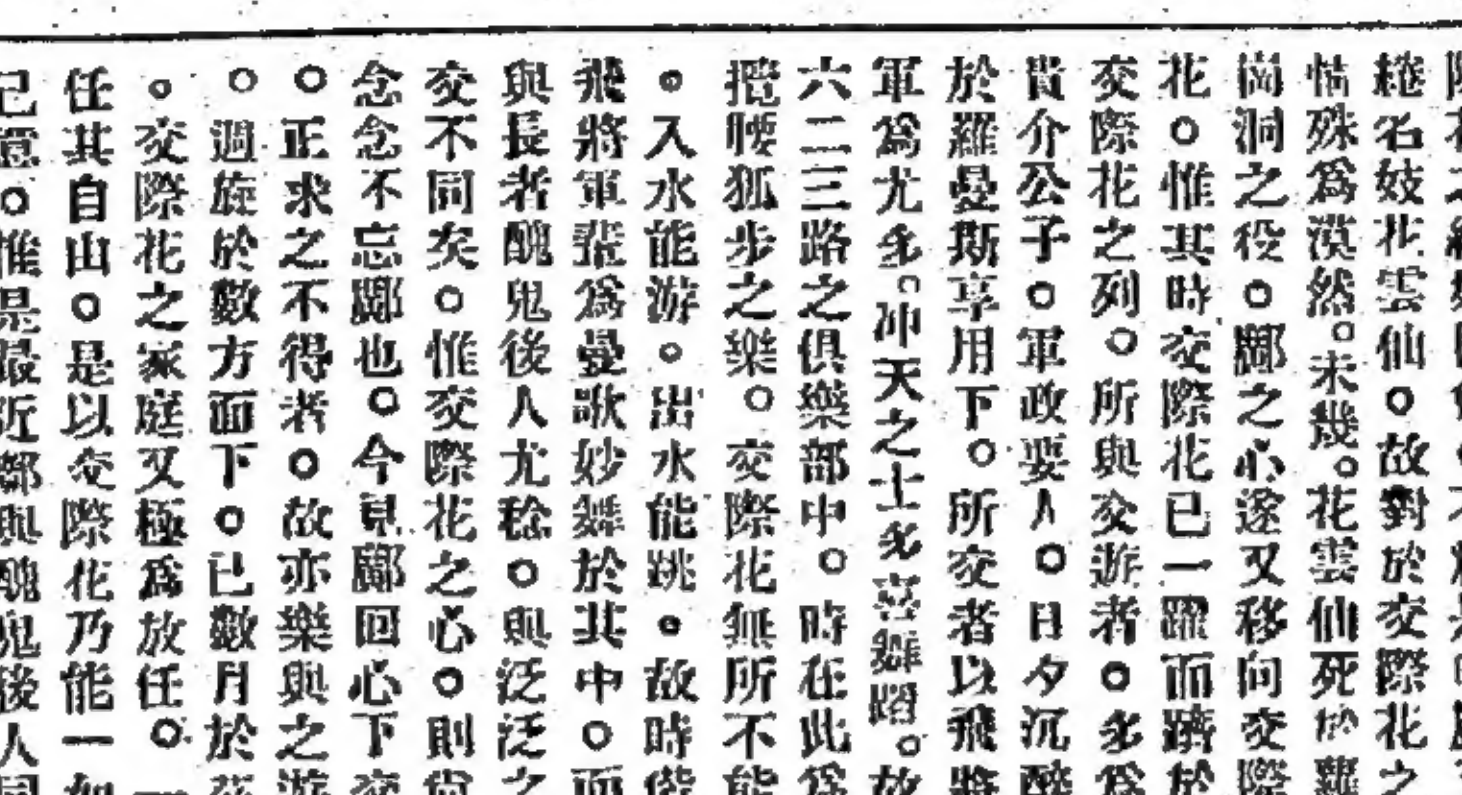 綣名妓花雲仙。故對於交際花之
情殊爲漠然。未幾。花雲仙死於羅
崗洞之役。鄺之心遂又移向交際
花。惟其時交際花已一躍而躋於
交際花之列。所與交遊者。多爲
貴介公子。軍政要人。日夕沉醉
於羅曼斯享用下。所交者以飛將
軍爲尤多。冲天之士多喜舞蹈。故
六二三路之俱樂部中。時在此爲
攬腰狐步之樂。交際花無所不能
。入水能游。出水能跳。故時偕
飛將軍輩爲曼歌妙舞於其中。而
與長者醜鬼後人尤稔。與泛泛之
交不同矣。惟交際花之心。則尙
念念不忘鄺也。今見鄺回心下交
。正求之不得者。故亦樂與之游
。週旋於數方面下。已數月於茲
。交際花之家庭又極爲放任。一
任其自由。是以交際花乃能一如
己意。惟是最近鄺與醜鬼後人同